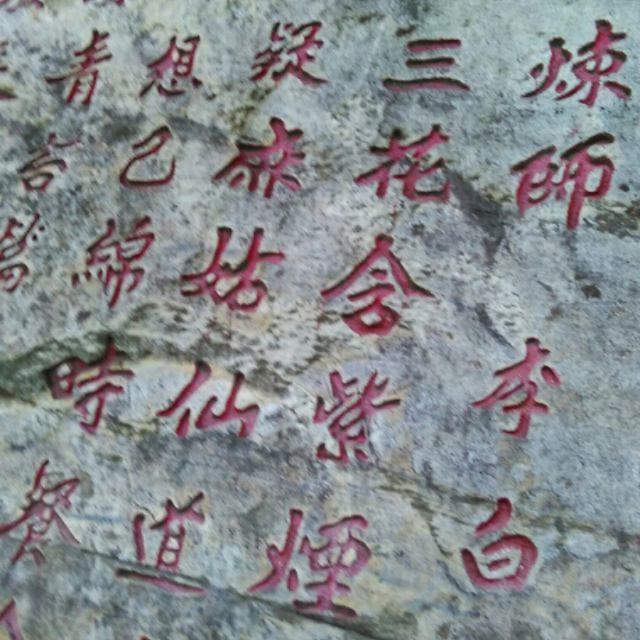 煉師李白
三花含紫煙
疑麻姑仙道
想已綿時餐
青苔